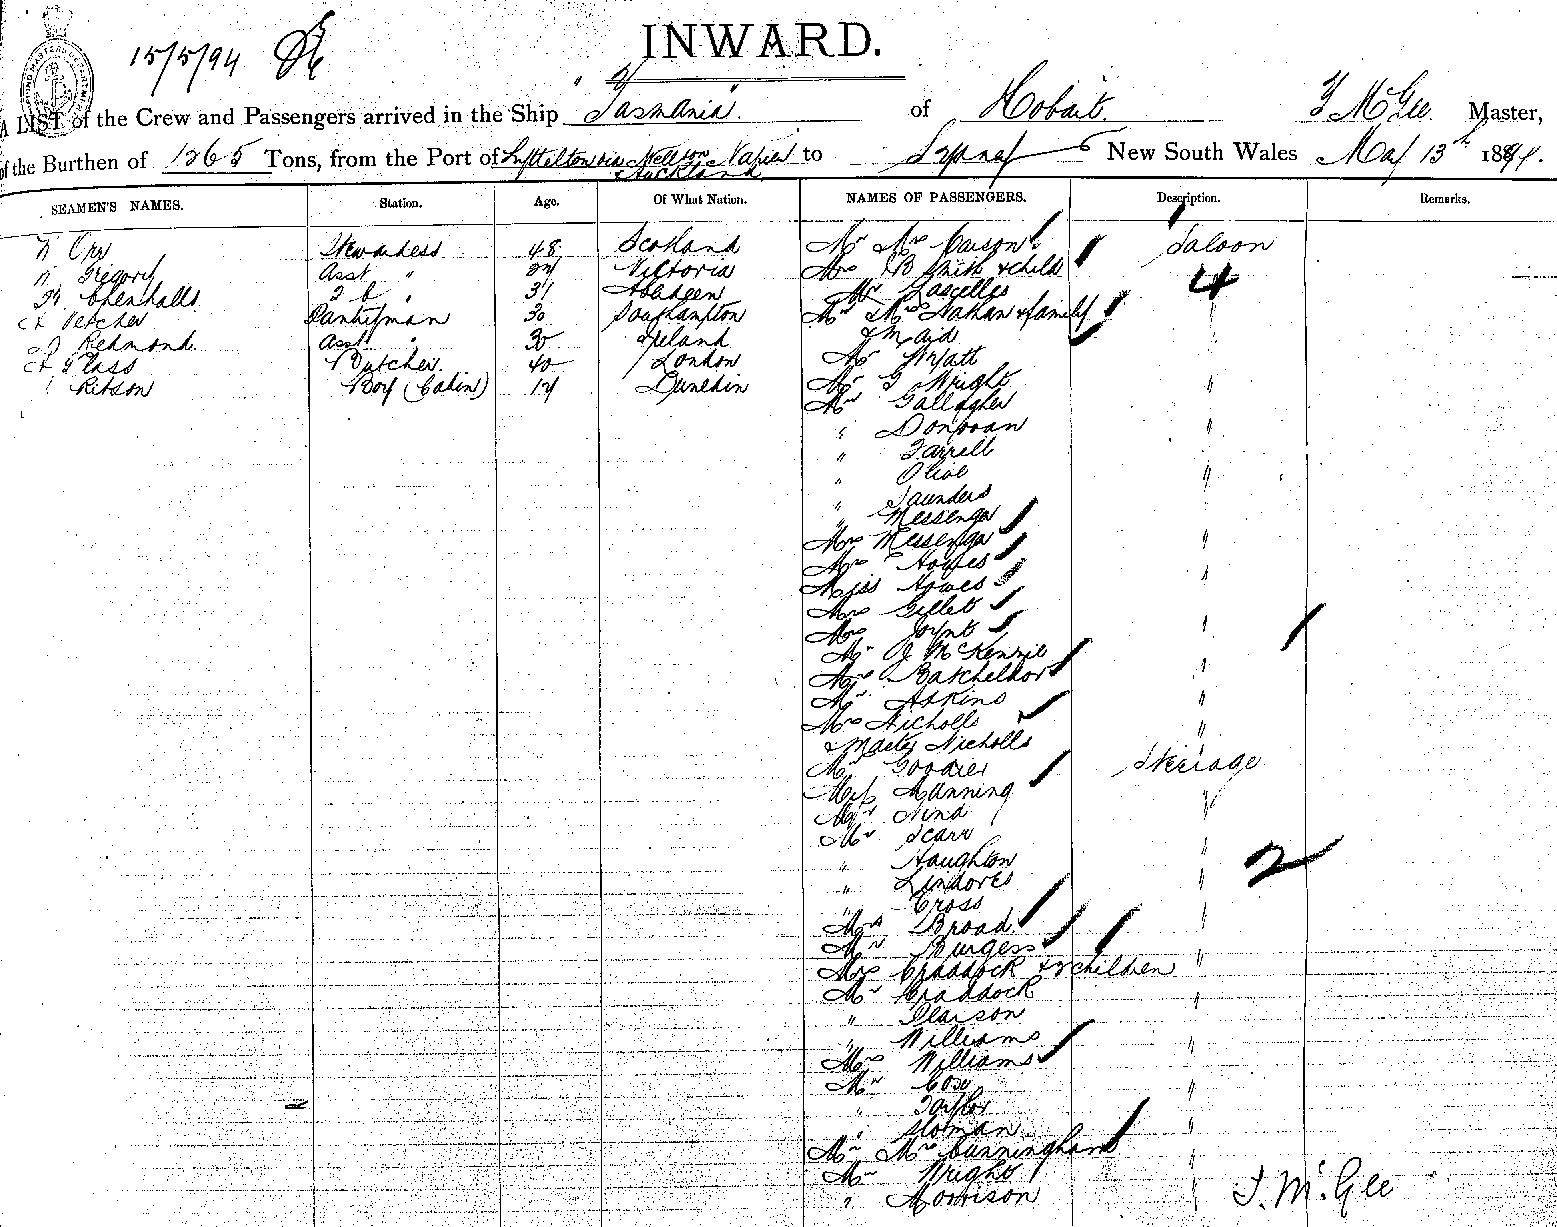 INWARD.
15/5/94
A LIST of the Crew and Passengers arrived in the Ship "Tasmania" of Hobart. T McGee Master,
of the Burthen of 1265 Tons, from the Port of Lyttelton via Nelson Napier & Auckland to Sydney New South Wales May 13th 1894.
SEAMEN'S NAMES. Station. Age. Of What Nation. NAMES OF PASSENGERS. Description. Remarks.
Orr Stewardess 48 Scotland Mr & Mrs Carson Saloon
Gregory Asst " Victoria Mrs B Smith & child 4
Chenhalls 2d " 31 Aberdeen Mr Lascelles
Petcher Pantryman 30 Southampton Mr & Mrs Nathan & family "
Redmond Asst " 30 Ireland & maid
Glass Butcher 40 London Mr Wyatt
Ribson Boy (Cabin) 17 Dunedin Mr T Wright "
Mr Gallagher
" Donovan "
" Farrell
" Olive "
" Saunders
" Messenga
Mrs Messenga "
Mrs Howes
Miss Howes "
Mrs Gillet
Mrs Joynt "
Mr J McKenzie
Mrs Batchellor "
Mr Askins "
Mrs Nicholls "
& Master Nicholls
Mr Goodier Steerage
Miss Manning "
Mr Nind
Mr Scarr "
" Haughton 2
" Lindores "
" Cross
Mrs Broad "
Mr Burgess
Mrs Craddock & 2 children "
Mr Craddock "
" Pearson
" Williams "
Mrs Williams
Mr Cox "
" Taylor "
" Homan "
Mr & Mrs Cunningham "
Mr Wright "
" Morrison "
T. McGee